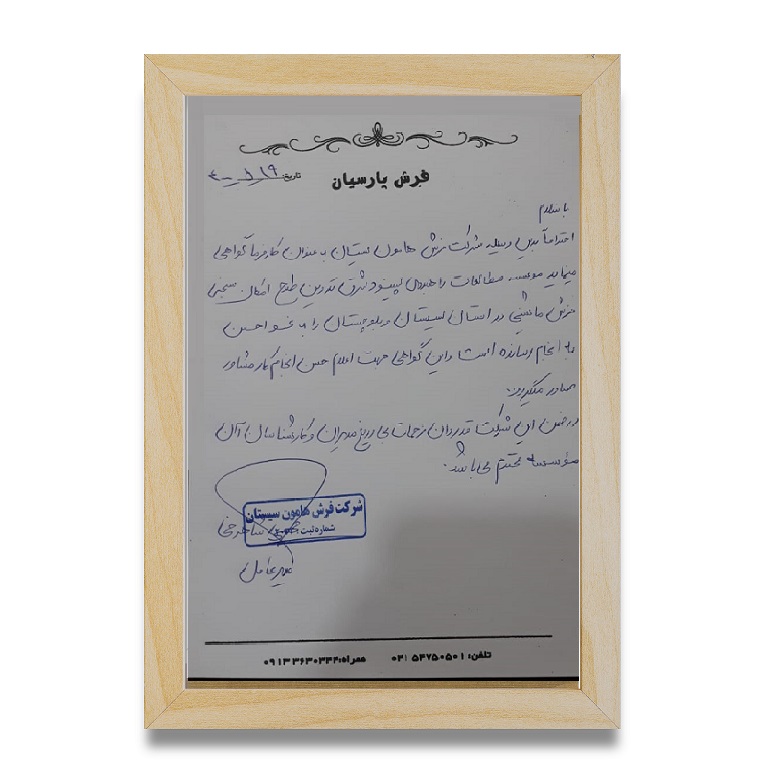 فرش پارسیان
تاریخ:
با سلام
احتراماً بدین وسیله شرکت فرش هامون سیستان به عنوان کارفرما گواهی
می‌نماید موسسه مطالعات راهبردی تدوین طرح امکان سنجی
فرش ماشینی در استان سیستان و بلوچستان را به نحو احسن
به انجام رسانده است و این گواهی جهت اعلام حسن انجام کار مشاور
صادر میگردد.
در ضمن این شرکت قدردان زحمات بی دریغ مدیران و کارشناسان آن
موسسه محترم می باشد.
شرکت فرش هامون سیستان
شماره ثبت
مدیر عامل
تلفن: ۵۴۷۵۰۵۰۱ ۰۳۱ همراه: ۰۹۱۳۳۶۳۰۳۳۴